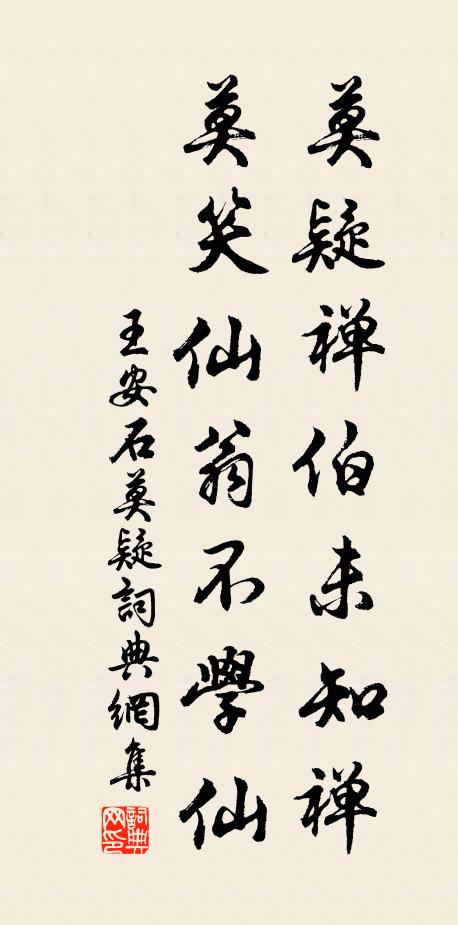 莫疑禅伯未知禅
莫笑仙翁不學仙
王安石莫疑詞典網集
詞典網印